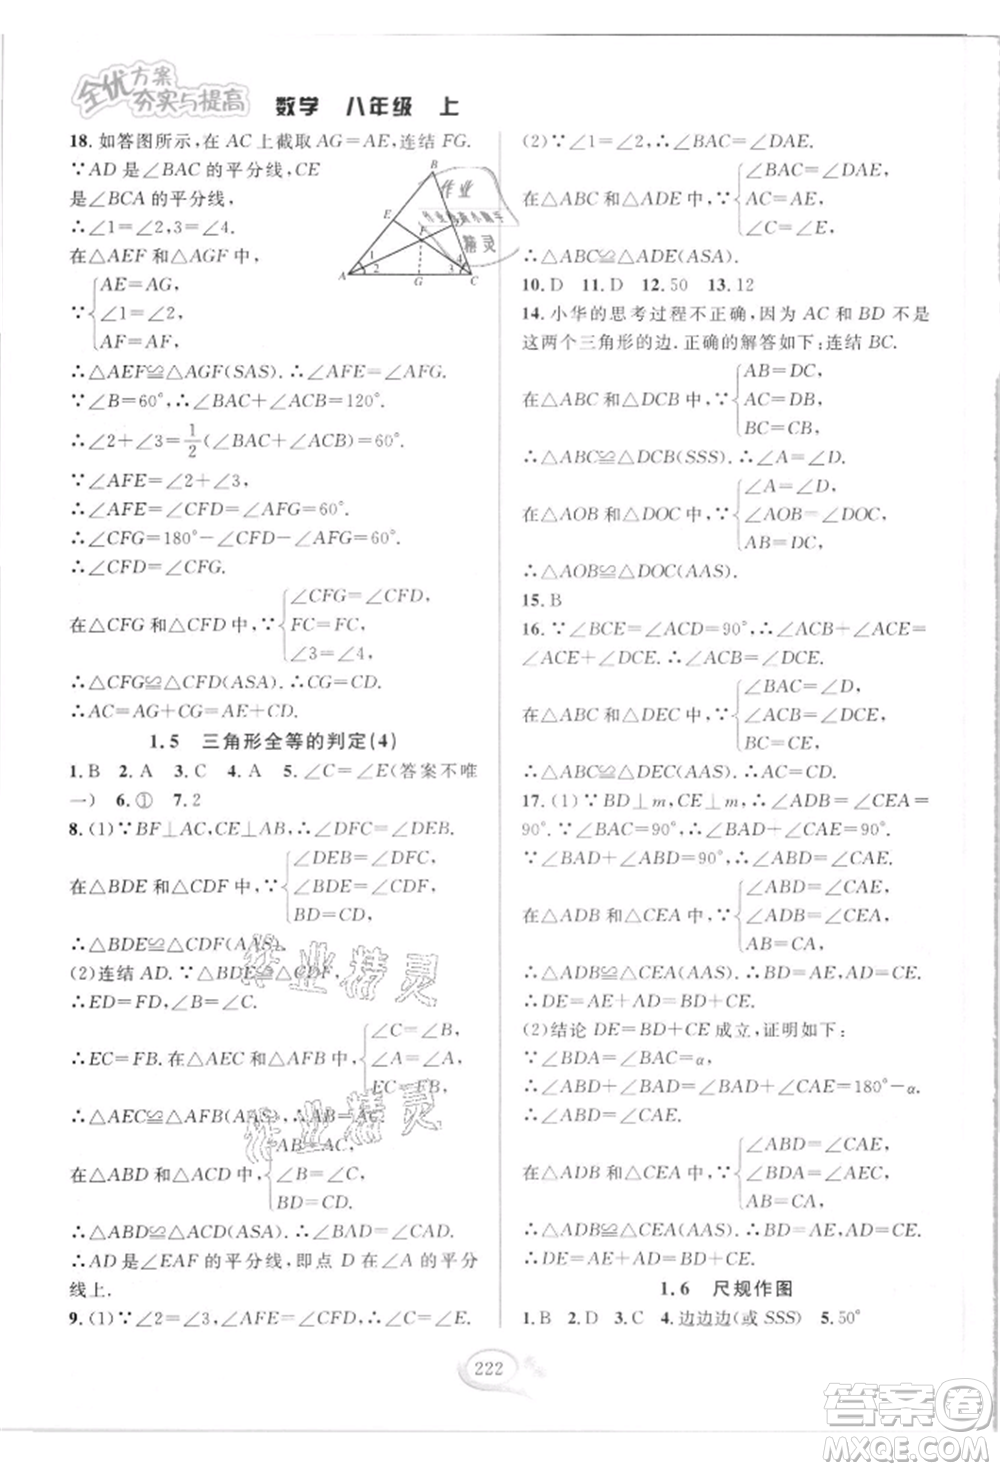 全优方案
夯实与提高 数学 八年级 上
18. 如答图所示,在 AC 上截取 AG=AE,连结 FG.
∵AD 是∠BAC 的平分线,CE
是∠BCA 的平分线,
∴∠1=∠2,∠3=∠4.
在△AEF 和△AGF 中,
∵{AE=AG,
∠1=∠2,
AF=AF,
B
E
F
A
G
C
1
2
3
4
∴△AEF≌△AGF(SAS). ∴∠AFE=∠AFG.
∵∠B=60°,∴∠BAC+∠ACB=120°.
∴∠2+∠3=1/2(∠BAC+∠ACB)=60°.
∵∠AFE=∠2+∠3,
∴∠AFE=∠CFD=∠AFG=60°.
∴∠CFG=180°-∠CFD-∠AFG=60°.
∴∠CFD=∠CFG.
在△CFG 和△CFD 中,∵{∠CFG=∠CFD,
FC=FC,
∠3=∠4,
∴△CFG≌△CFD(ASA). ∴CG=CD.
∴AC=AG+CG=AE+CD.
1.5 三角形全等的判定(4)
1. B 2. A 3. C 4. A 5. ∠C=∠E(答案不唯
一) 6. ① 7. 2
8. (1)∵BF⊥AC,CE⊥AB,∴∠DFC=∠DEB.
在△BDE 和△CDF 中,∵{∠DEB=∠DFC,
∠BDE=∠CDF,
BD=CD,
∴△BDE≌△CDF(AAS).
(2)连结 AD. ∵△BDE≌△CDF,
∴ED=FD,∠B=∠C.
∴EC=FB. 在△AEC 和△AFB 中,∵{∠C=∠B,
∠A=∠A,
EC=FB,
∴△AEC≌△AFB(AAS). ∴AB=AC.
在△ABD 和△ACD 中,∵{AB=AC,
∠B=∠C,
BD=CD,
∴△ABD≌△ACD(SAS). ∴∠BAD=∠CAD.
∴AD 是∠EAF 的平分线,即点 D 在∠A 的平分
线上.
9. (1)∵∠2=∠3,∠AFE=∠CFD,∴∠E=∠C.
(2)∵∠1=∠2,∴∠BAC=∠DAE.
在△ABC 和△ADE 中,∵{∠BAC=∠DAE,
AC=AE,
∠C=∠E,
∴△ABC≌△ADE(ASA).
10. D 11. D 12. 50 13. 12
14. 小华的思考过程不正确,因为 AC 和 BD 不是
这两个三角形的边. 正确的解答如下:连结 BC.
在△ABC 和△DCB 中,∵{AB=DC,
AC=DB,
BC=CB,
∴△ABC≌△DCB(SSS). ∴∠A=∠D.
在△AOB 和△DOC 中,∵{∠A=∠D,
∠AOB=∠DOC,
AB=DC,
∴△AOB≌△DOC(AAS).
15. B
16. ∵∠BCE=∠ACD=90°,∴∠ACB+∠ACE=
∠ACE+∠DCE. ∴∠ACB=∠DCE.
在△ABC 和△DEC 中,∵{∠BAC=∠D,
∠ACB=∠DCE,
BC=CE,
∴△ABC≌△DEC(AAS). ∴AC=CD.
17. (1)∵BD⊥m,CE⊥m,∴∠ADB=∠CEA=
90°. ∵∠BAC=90°,∴∠BAD+∠CAE=90°.
∵∠BAD+∠ABD=90°,∴∠ABD=∠CAE.
在△ADB 和△CEA 中,∵{∠ABD=∠CAE,
∠ADB=∠CEA,
AB=CA,
∴△ADB≌△CEA(AAS). ∴BD=AE,AD=CE.
∴DE=AE+AD=BD+CE.
(2)结论 DE=BD+CE 成立,证明如下:
∵∠BDA=∠BAC=α,
∴∠DBA+∠BAD=∠BAD+∠CAE=180°-α.
∴∠ABD=∠CAE.
在△ADB 和△CEA 中,∵{∠ABD=∠CAE,
∠BDA=∠AEC,
AB=CA,
∴△ADB≌△CEA(AAS). ∴BD=AE,AD=CE.
∴DE=AE+AD=BD+CE.
1.6 尺规作图
1. B 2. D 3. C 4. 边边边(或 SSS) 5. 50°
222
作业精灵
作业精灵
答案圈
MXQE.COM